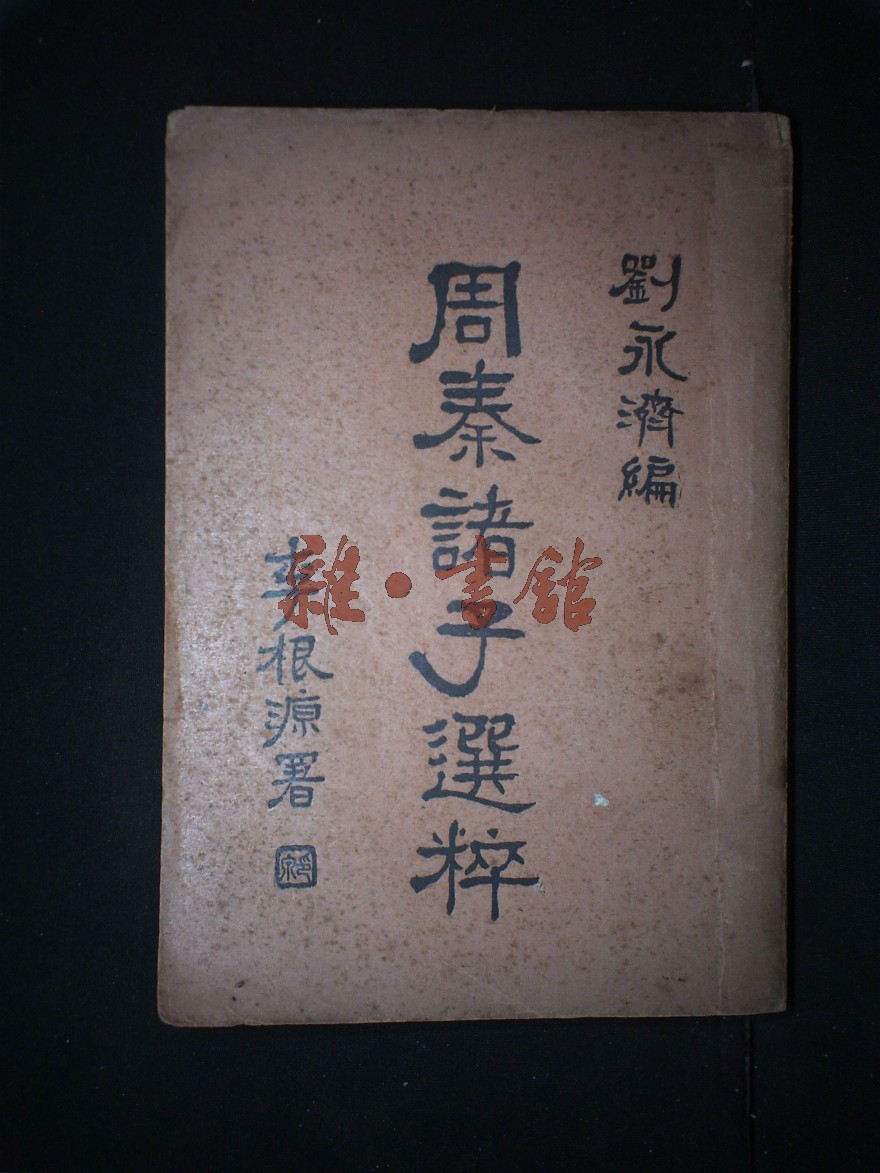 劉永濟編
周秦諸子選粹
李根源署
雜·書館